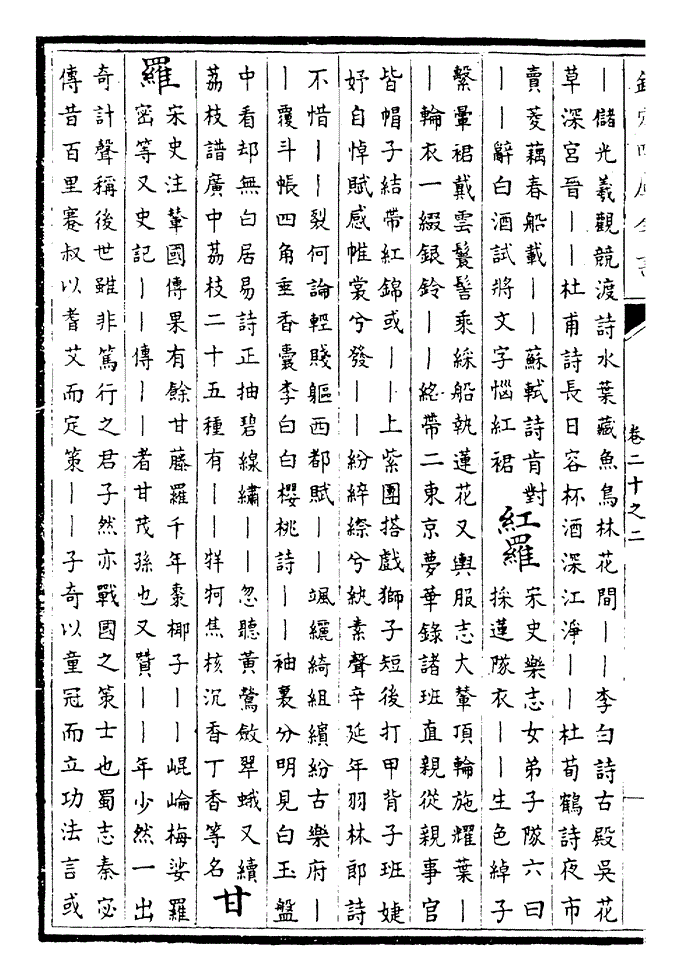 欽定四庫全書
卷二十之二
｜儲光羲觀競渡詩水葉藏魚鳥林花間｜｜李白詩古殿吳花
草深宮晉｜｜杜甫詩長日容杯酒深江淨｜｜杜荀鶴詩夜市
賣菱藕春船載｜｜蘇軾詩肯對
｜｜辭白酒試將文字惱紅裙
紅羅
宋史樂志女弟子隊六曰
採蓮隊衣｜｜生色綽子
繫暈裙戴雲鬟髻乘綵船執蓮花又輿服志大輦頂輪施耀葉｜
｜輪衣一綴銀鈴｜｜絡帶二東京夢華錄諸班直親從親事官
皆帽子結帶紅錦或｜｜上紫團搭戲獅子短後打甲背子班婕
妤自悼賦感帷裳兮發｜｜紛綷縩兮紈素聲辛延年羽林郎詩
不惜｜｜裂何論輕賤軀西都賦｜｜颯纚綺組繽紛古樂府｜
｜覆斗帳四角垂香囊李白白櫻桃詩｜｜袖裏分明見白玉盤
中看却無白居易詩正抽碧線繡｜｜忽聽黃鶯斂翠蛾又續
荔枝譜廣中荔枝二十五種有｜｜牂牁焦核沉香丁香等名
甘
羅
宋史注輦國傳果有餘甘藤羅千年棗椰子｜｜崐崘梅娑羅
宻等又史記｜｜傳｜｜者甘茂孫也又贊｜｜年少然一出
奇計聲稱後世雖非篤行之君子然亦戰國之策士也蜀志秦宓
傳昔百里蹇叔以耆艾而定策｜｜子奇以童冠而立功法言或